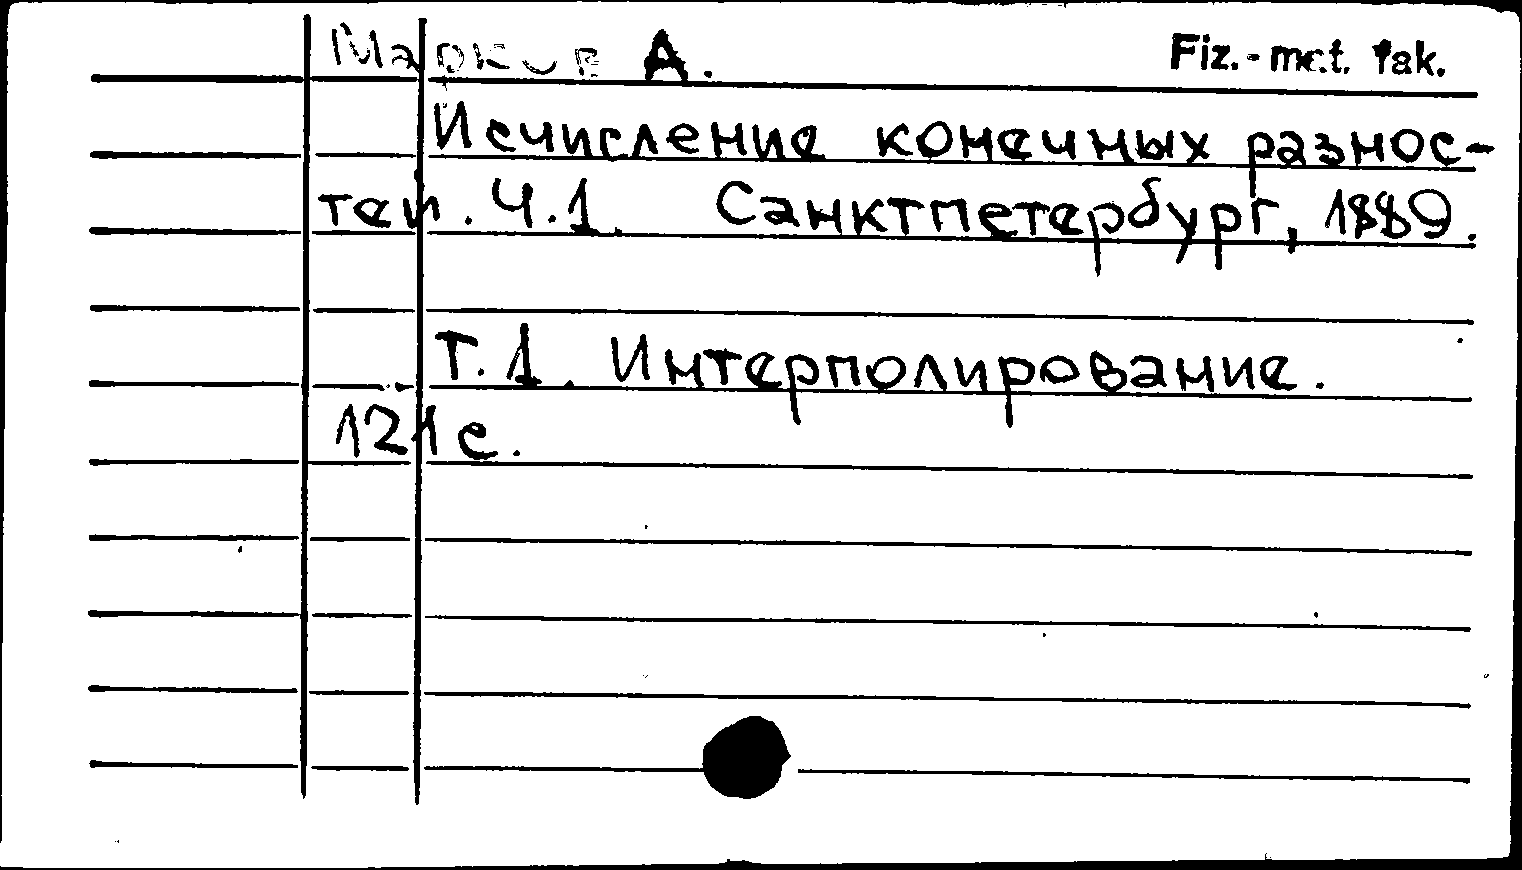 Марков А. Fiz.-mat. fak.
Исчисление конечных разнос-
тей. Ч.1. Санктпетербург, 1889.
Т.1. Интерполирование.
121 с.